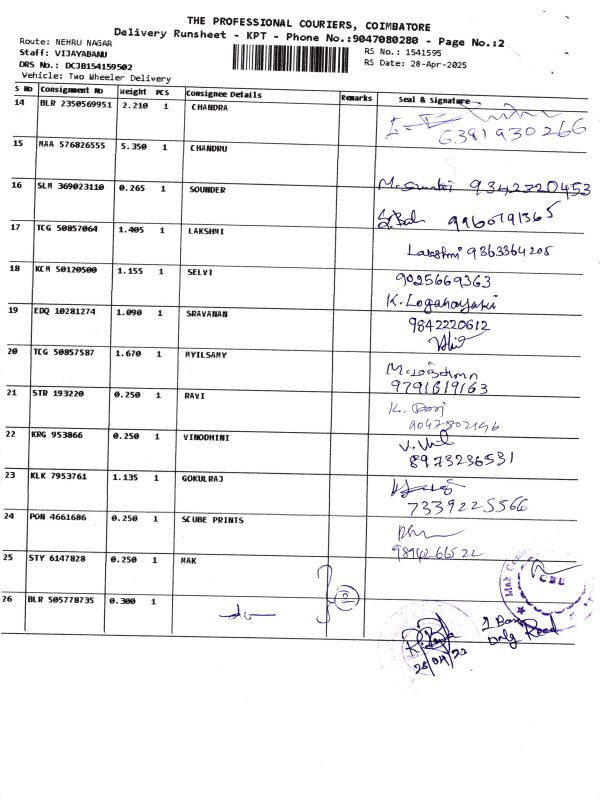 THE PROFESSIONAL COURIERS, COIMBATORE
Delivery Runsheet - KPT - Phone No.:9047080280 - Page No.:2
Route: NEHRU NAGAR
Staff: VIJAYABANU
DRS No.: DCJB154159502
Vehicle: Two Wheeler Delivery
RS No.: 1541595
RS Date: 28-Apr-2025
S No Consignment No Weight PCS Consignee Details Remarks Seal & Signature
14 BLR 2350569951 2.210 1 CHANDRA
6381930266
15 MAA 576826555 5.350 1 CHANDRU
16 SLM 369023110 0.265 1 SOUNDER
9342220453
9960791365
17 TCG 50857064 1.405 1 LAKSHMI
Lakshmi 9363364205
18 KCM 50120500 1.155 1 SELVI
9025669363
K. Loganayaki
19 EDQ 10281274 1.090 1 SRAVANAN
9842220612
20 TCG 50857587 1.670 1 MYILSAMY
9791619163
21 STR 193220 0.250 1 RAVI
K. Ravi
9047802196
22 KRG 953866 0.250 1 VINODHINI
8973236531
23 KLK 7953761 1.135 1 GOKULRAJ
7339225566
24 PON 4661686 0.250 1 SCUBE PRINTS
25 STY 6147828 0.250 1 MAK
CBE
26 BLR 505778735 0.300 1
Only Recd